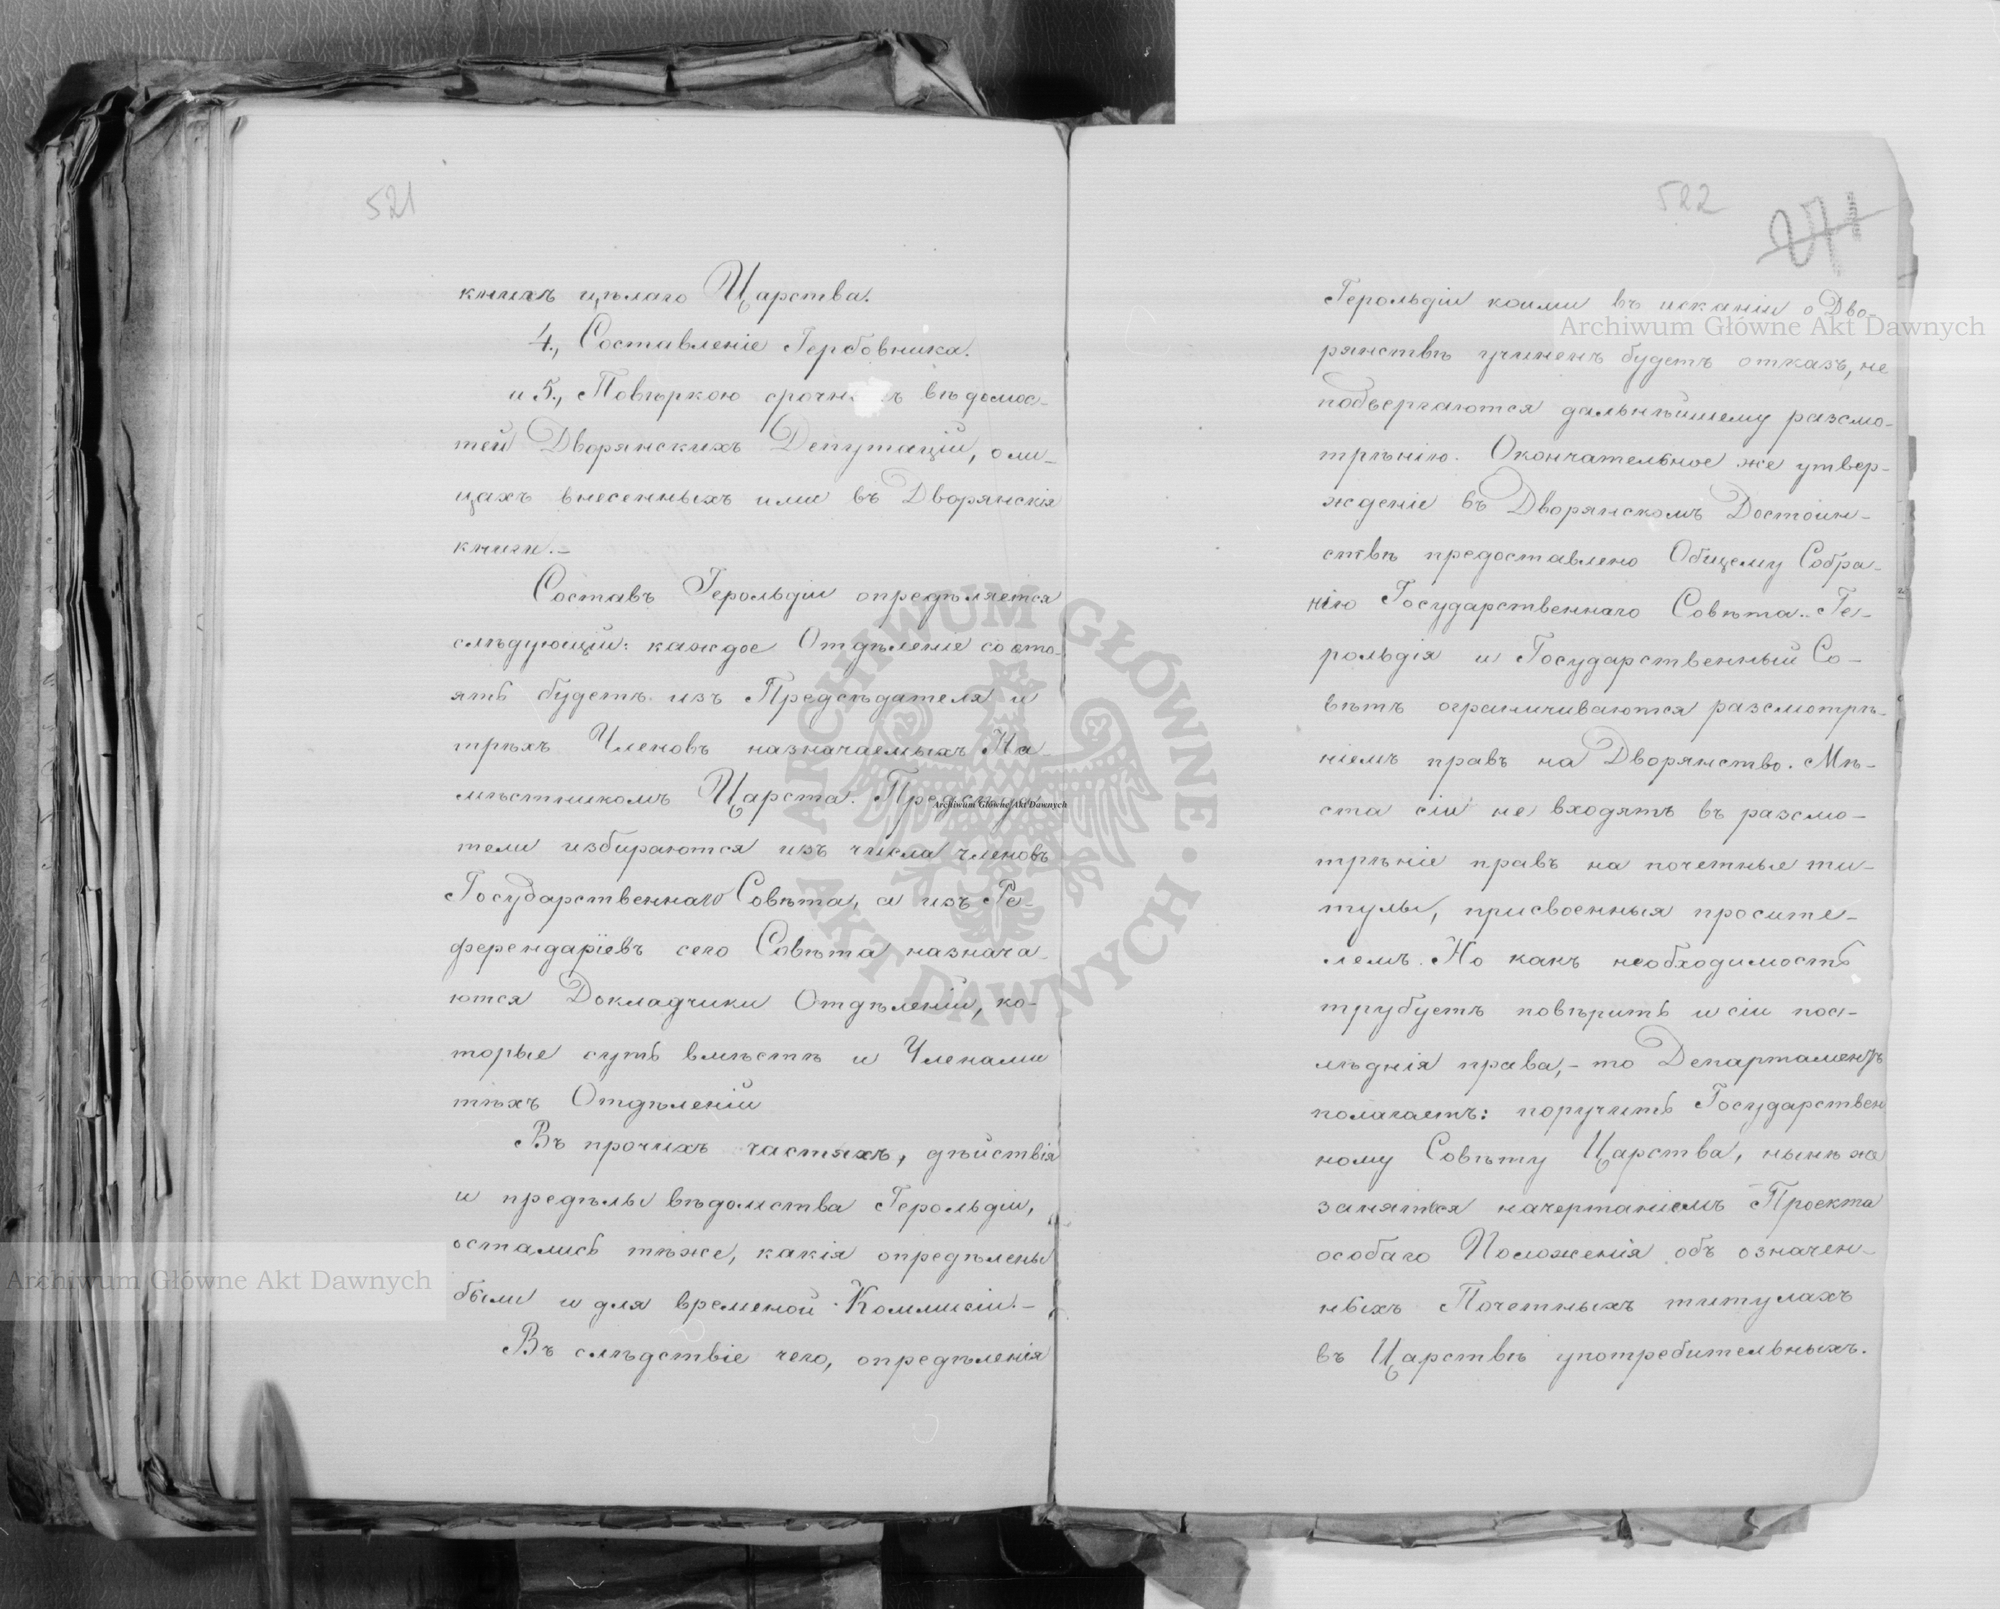 521
книгъ цѣлаго Царства.
4., Составленіе Гербовника.
и 5., Повѣркою срочн ъ вѣдомос-
тей Дворянскихъ Депутацій, о ли-
цахъ внесенныхъ ими въ Дворянскія
книги.-
Составъ Герольдіи опредѣляется
слѣдующій: каждое Отдѣленіе состо-
ять будетъ изъ Предсѣдателя и
трехъ Членовъ назначаемыхъ На-
мѣстникомъ Царста. Предсѣда-
тели избираются изъ числа членовъ
Государственнаго Совѣта, а изъ Ре-
ферендаріевъ сего Совѣта назнача-
ются Докладчики Отдѣленій, ко-
торые суть вмѣстѣ и Членами
тѣхъ Отдѣленій
Въ прочихъ частяхъ, дѣйствія
и предѣлы вѣдомства Герольдіи,
остались тѣже, какія опредѣлены
были и для временой Коммисіи.-
Въ слѣдствіе чего, опредѣленія
522
271
Герольдіи коими въ исканіи о Дво-
рянствѣ учиненъ будетъ отказъ, не
подвергаются дальнѣйшему разсмо-
трѣнію. Окончательное же утвер-
жденіе въ Дворянскомъ Достоин-
ствѣ предоставлено Общему Собра-
нію Государственнаго Совѣта.. Ге-
рольдія и Государственный Со-
вѣтъ ограничиваются разсмотрѣ-
ніемъ правъ на Дворянство. Мѣ-
ста сіи не входятъ въ разсмо-
трѣніе правъ на почетные ти-
тулы, присвоенныя просите-
лемъ. Но какъ необходимость
трубуетъ повѣрить и сіи пос-
лѣднія права,- то Департаментъ
полагаетъ: поручить Государствен
ному Совѣту Царства, нынѣ же
заняться начертаніемъ Проекта
особаго Положенія объ означен-
ныхъ Почетныхъ титулахъ
въ Царствѣ употребительныхъ.
Archiwum Główne Akt Dawnych
Archiwum Główne Akt Dawnych
Archiwum Główne Akt Dawnych
ARCHIWUM GŁÓWNE AKT DAWNYCH